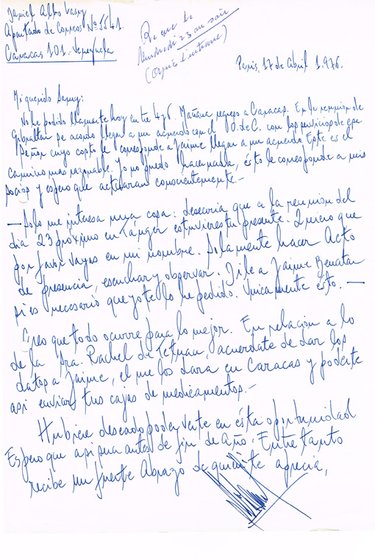 Apartado de Correos Nº 5541
Caracas 101 - Venezuela
Reçue le
Vendredi 23 au soir
París, 17 de Abril 1976.
Mi querido
No he podido llamarte hoy entre 4 y 6. Mañana regreso a Caracas. En la reunión de
Gibraltar se acordó llegar a un acuerdo con el
le corresponde a Jaime llegar a un acuerdo. Este es el
camino más razonable. Yo no puedo hacer nada, ésto le corresponde a mis
socios y espero que actuaran convenientemente.—
— Solo me interesa una cosa: desearía que a la reunión del
día 23 próximo en Tánger estuvieras tu presente. Quiero que
por favor vayas en mi nombre. Solamente hacer Acto
de presencia, escuchar y observar. Dile a Jaime Benatar
si es necesario que yo te lo he pedido. Unicamente esto. —
Creo que todo ocurre para lo mejor. En relación a lo
de la Sra. Rachel de Tetuan, acuerdate de dar los
datos a Jaime, el me los dara en Caracas y poderte
asi enviar tus cajas de medicamentos.—
Hubiese deseado poder verte en esta oportunidad
Espero que asi sea antes de fin de año. Entre tanto
recibe un fuerte Abrazo de quien te aprecia,